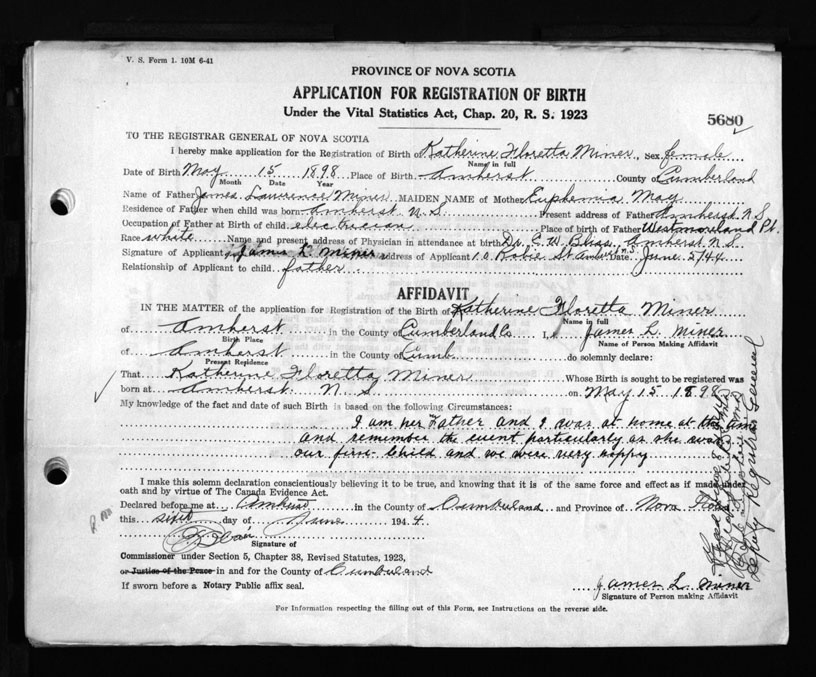 V. S. Form 1. 10M 6-41
PROVINCE OF NOVA SCOTIA
APPLICATION FOR REGISTRATION OF BIRTH
Under the Vital Statistics Act, Chap. 20, R. S. 1923
5680
TO THE REGISTRAR GENERAL OF NOVA SCOTIA
I hereby make application for the Registration of Birth of Katherine Floretta Miner, Sex female
Name in full
Date of Birth May 15 1898 Place of Birth Amherst County of Cumberland
Month Date Year
Name of Father James Lawrence Miner MAIDEN NAME of Mother Euphemia May
Residence of Father when child was born Amherst N.S Present address of Father Amherst N S
Occupation of Father at Birth of child electrician Place of birth of Father Westmoreland Pt.
Race white Name and present address of Physician in attendance at birth Dr. C. W. Bliss, Amherst N S.
Signature of Applicant James L. Miner address of Applicant 10 Robie St Amherst N.S. Date June 5/44
Relationship of Applicant to child father
AFFIDAVIT
IN THE MATTER of the application for Registration of the Birth of Katherine Floretta Miner
Name in full
of Amherst in the County of Cumberland Co I, James L. Miner
Birth Place Name of Person Making Affidavit
of Amherst in the County of Cumb. do solemnly declare:
Present Residence
That Katherine Floretta Miner Whose Birth is sought to be registered was
born at Amherst N. S on May 15 1898
My knowledge of the fact and date of such Birth is based on the following Circumstances:
I am her Father and I was at home at the time
and remember the event particularly as she was
our first child and we were very happy
I make this solemn declaration conscientiously believing it to be true, and knowing that it is of the same force and effect as if made under
oath and by virtue of The Canada Evidence Act.
Declared before me at Amherst in the County of Cumberland and Province of Nova Scotia
this day of June 1944
Signature of
Commissioner under Section 5, Chapter 38, Revised Statutes, 1923,
or Justice of the Peace in and for the County of Cumberland
If sworn before a Notary Public affix seal.
James L. Miner
Signature of Person making Affidavit
For Information respecting the filling out of this Form, see Instructions on the reverse side.
Deputy Registrar General